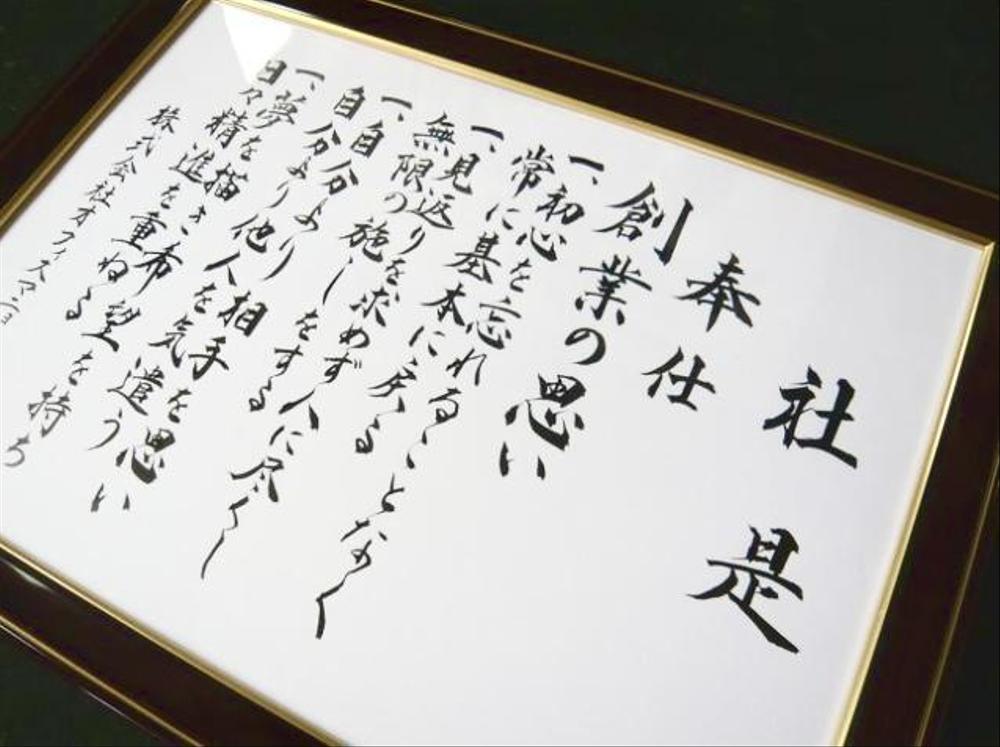 社是
奉仕
創業の思い
一、初心を忘れることなく
常に基本に戻る
一、見返りを求めず人に尽くし
無限の施しをする
一、自分より他人相手を思い
自分より他人を気遣う
一、夢を描き希望を持ち
日々精進を重ねる
株式会社オフィスマ